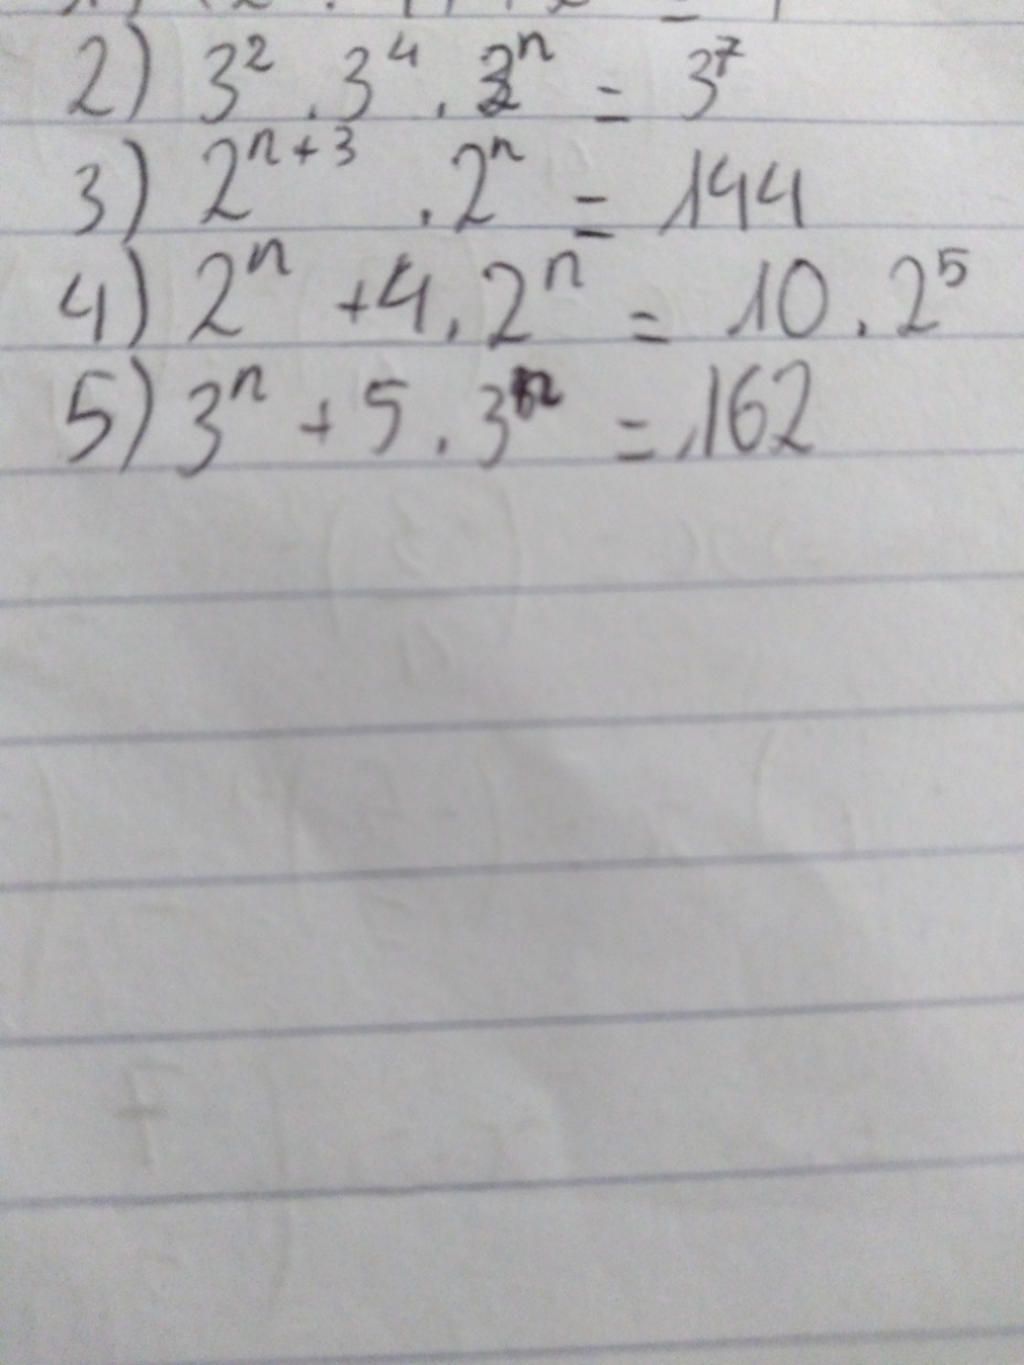 2) 3² . 3⁴ . 3ⁿ = 3⁷
3) 2ⁿ⁺³ . 2ⁿ = 144
4) 2ⁿ + 4 . 2ⁿ = 10 . 2⁵
5) 3ⁿ + 5 . 3ⁿ = 162